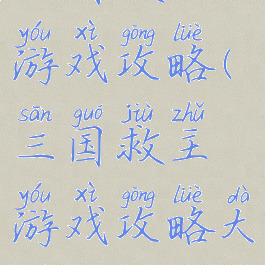 yóu xì gōng lüè
游戏攻略(
sān guó jiù zhǔ
三国救主
yóu xì gōng lüè dà
游戏攻略大